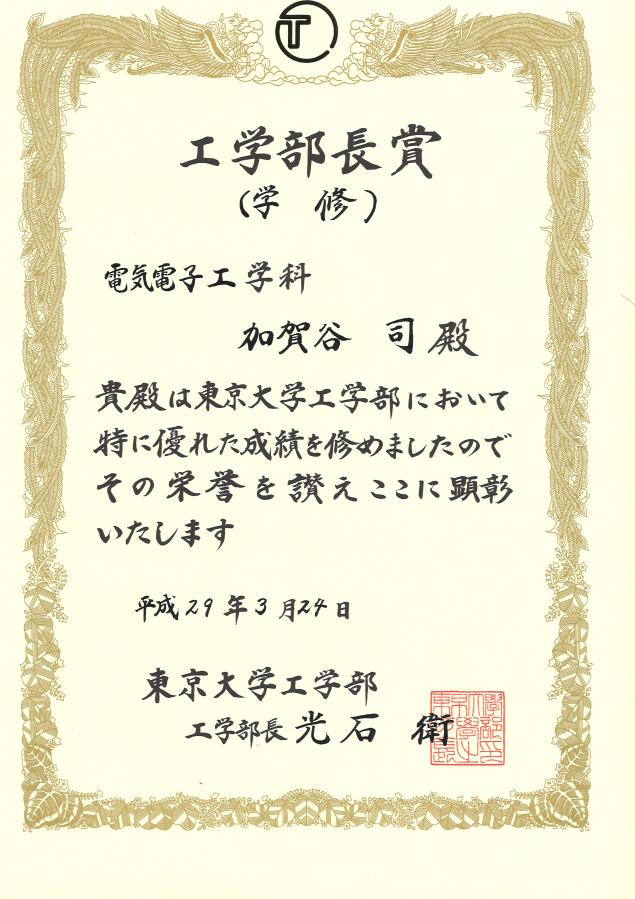 T
工学部長賞
(学 修)
電気電子工学科
加賀谷 司殿
貴殿は東京大学工学部において
特に優れた成績を修めましたので
その栄誉を讃えここに顕彰
いたします
平成29年3月24日
東京大学工学部
工学部長 光石 衛